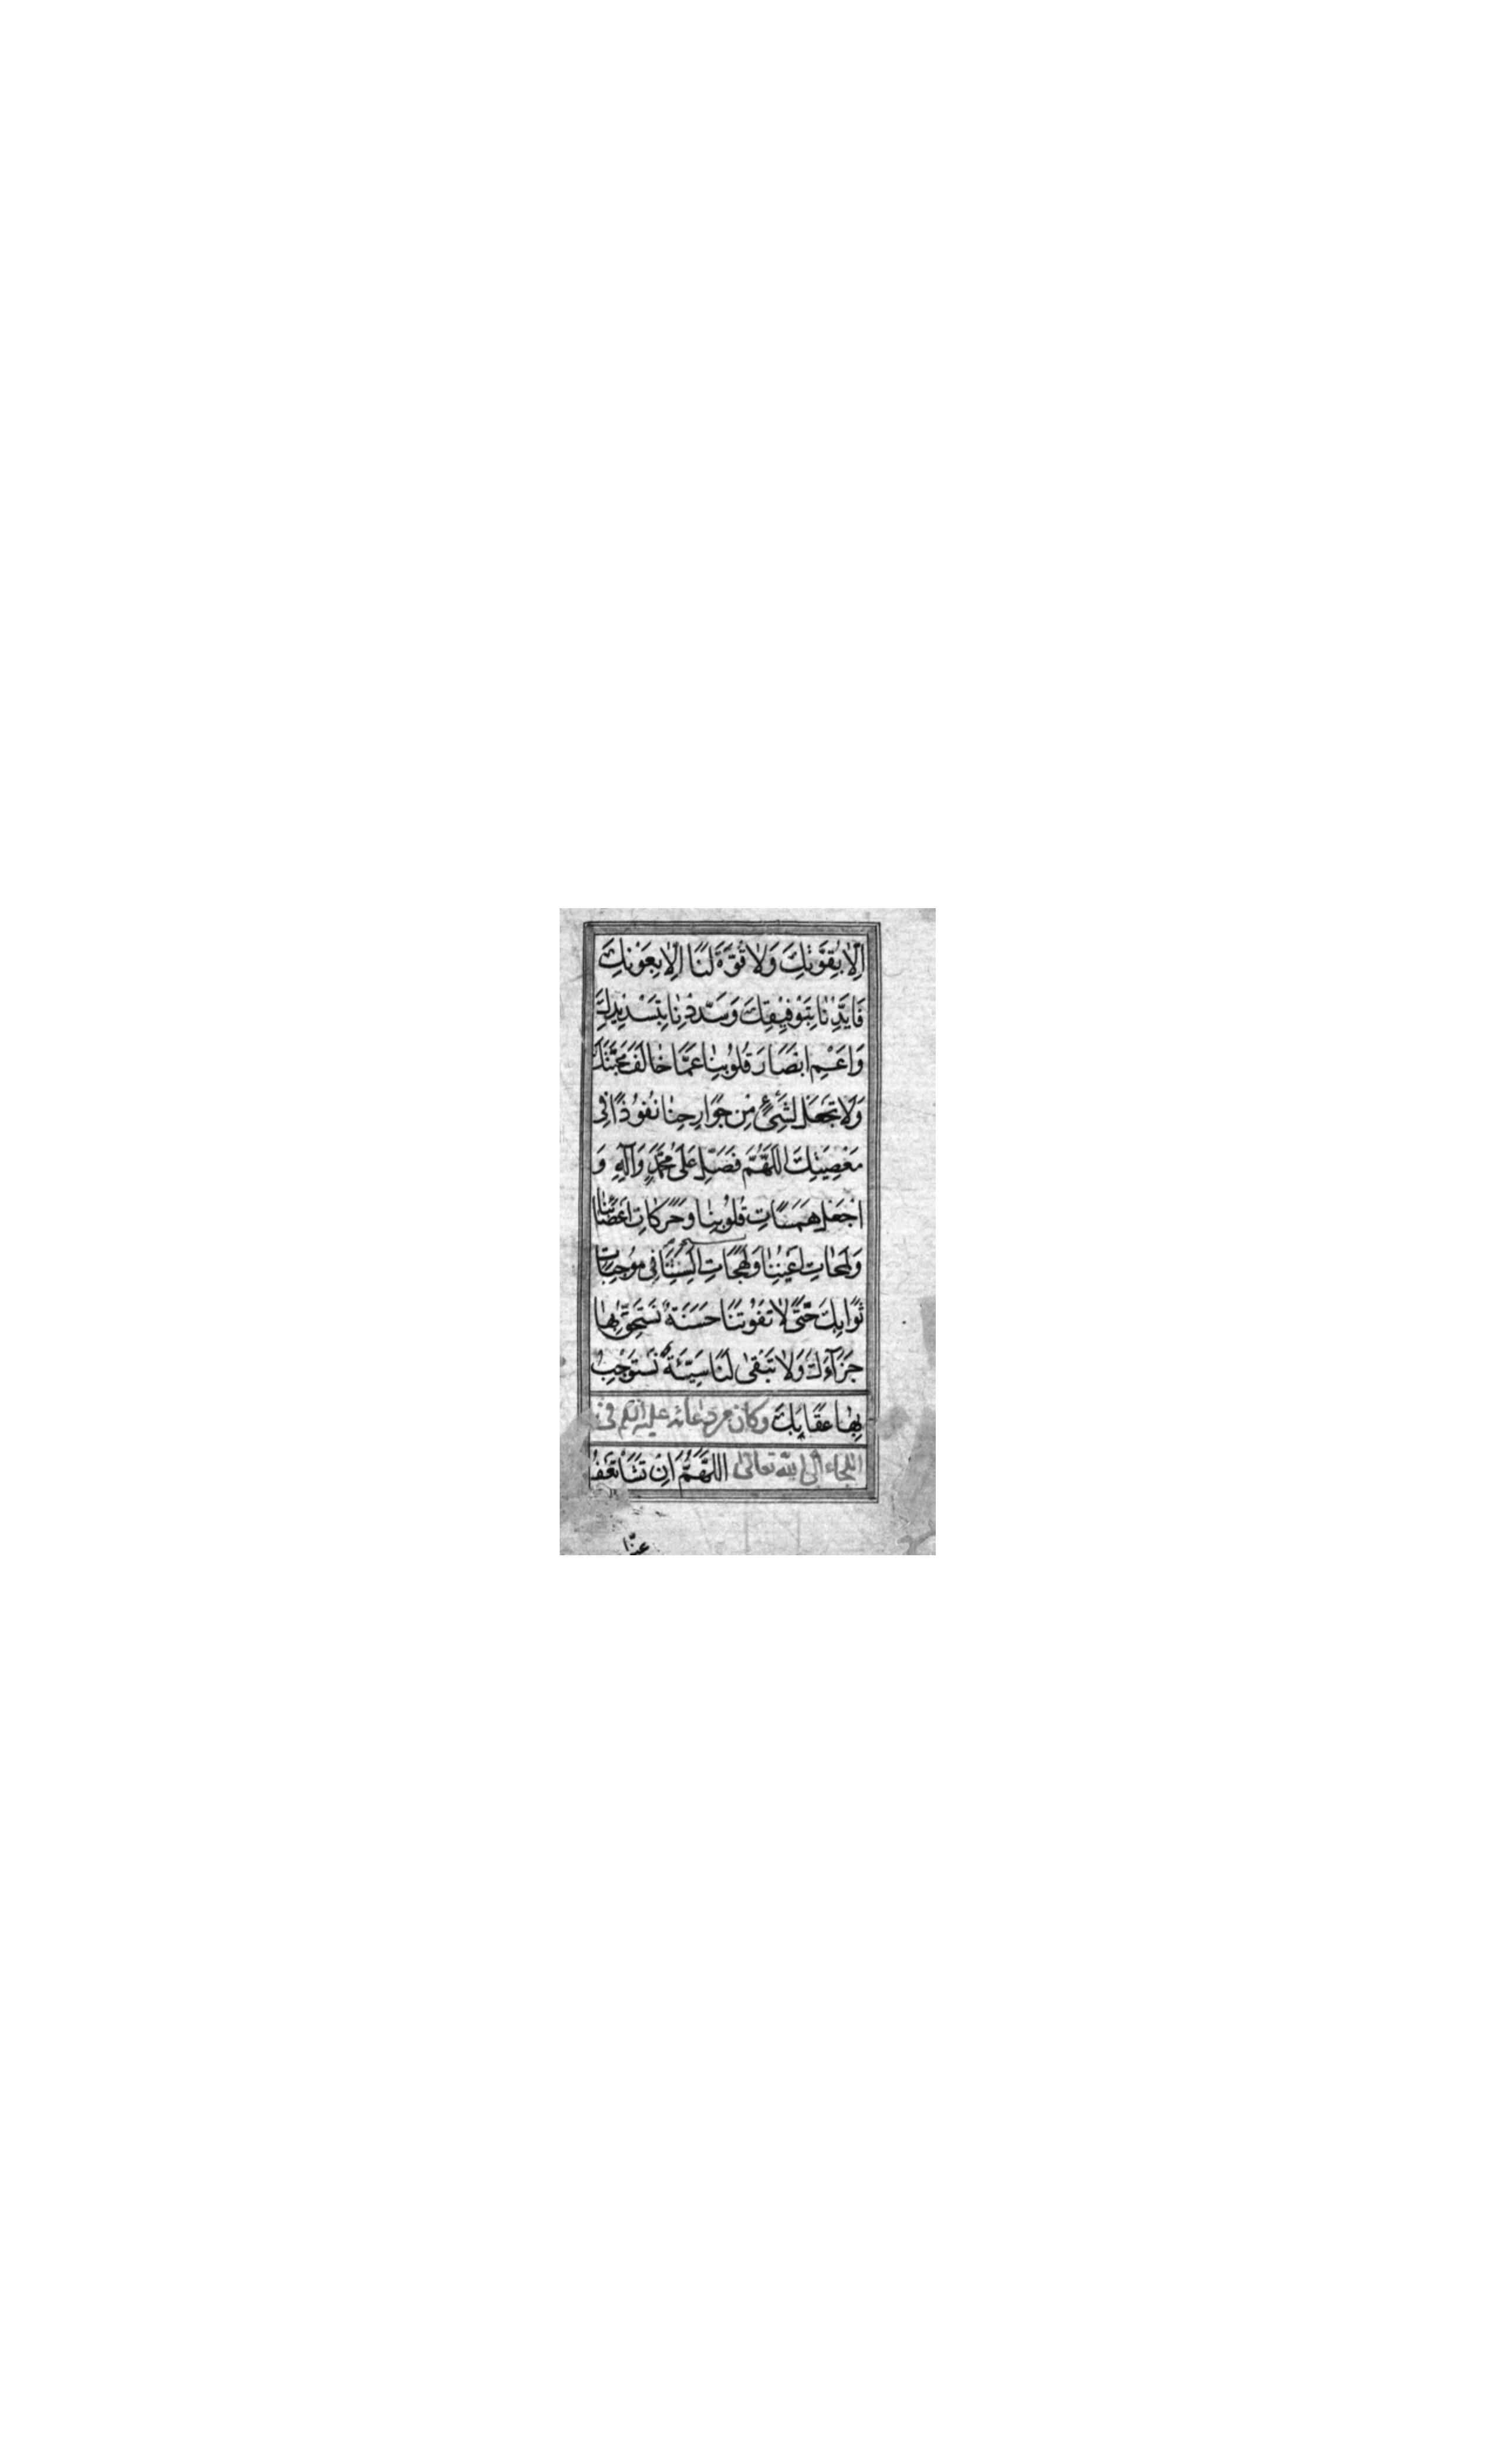 اِلّا بِقُوَّتِكَ وَلا قُوَّةَ لَنا اِلّا بِعَوْنِكَ
فَاَيِّدْنا بِتَوْفيقِكَ وَسَدِّدْنا بِتَسْديدِكَ
وَاَعْمِ اَبْصارَ قُلُوبِنا عَمّا خالَفَ مَحَبَّتَكَ
وَلا تَجْعَلْ لِشَيْءٍ مِنْ جَوارِحِنا نُفُوذًا فى
مَعْصِيَتِكَ اللّهُمَّ فَصَلِّ عَلى مُحَمَّدٍ وَآلِهِ وَ
اجْعَلْ هَمَساتِ قُلُوبِنا وَحَرَكاتِ اَعْضائِنا
وَلَمَحاتِ اَعْيُنِنا وَلَهَجاتِ اَلْسِنَتِنا فى مُوجِباتِ
ثَوابِكَ حَتّى لا تَفُوتَنا حَسَنَةٌ نَسْتَحِقُّ بِها
جَزآءَكَ وَلا تَبْقى لَنا سَيِّئَةٌ نَسْتَوْجِبُ
بِها عِقابَكَ وكان من دعائه عليه السّلم فى
اللجاء الى الله تعالى اللّهُمَّ اِنْ تَشَأْ تَعْفُ
عنّا